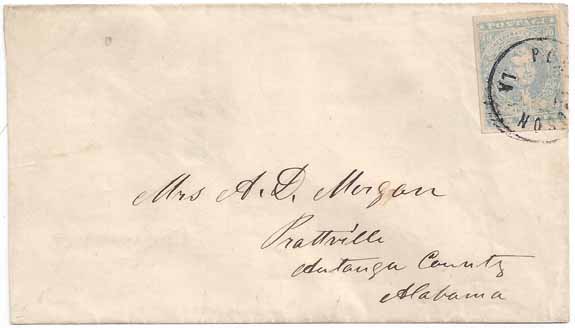 POSTAGE
PO
LA
SON
Mrs A. D. Morgan
Prattville
Autauga County
Alabama